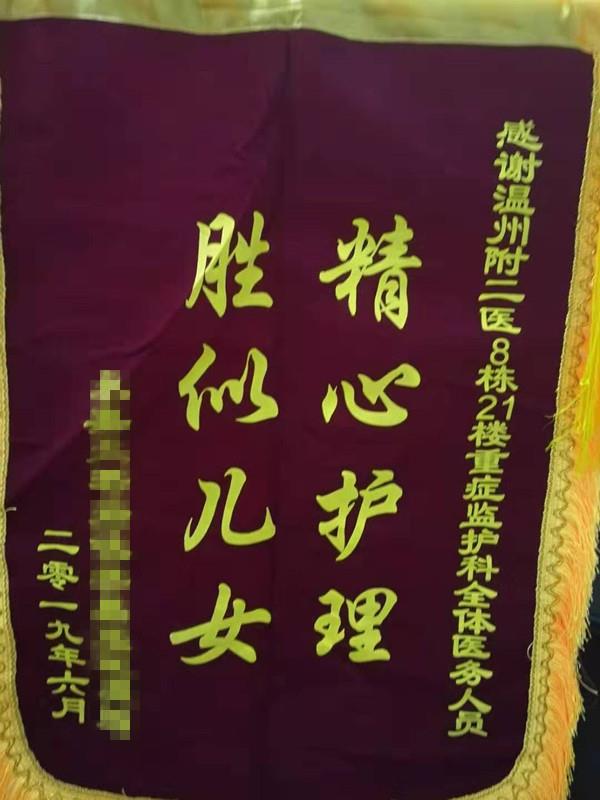 感谢温州附二医8栋21楼重症监护科全体医务人员
精心护理
胜似儿女
二零一九年六月